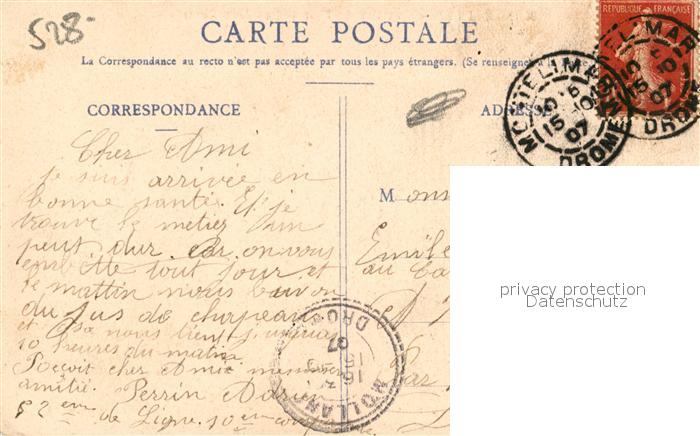 528-
CARTE POSTALE
La Correspondance au recto n'est pas acceptée par tous les pays étrangers. (Se renseigner à la
REPUBLIQUE FRANÇAISE
MONTELIMAR
15 -10
07
DROME
CORRESPONDANCE
ADRESSE
Cher Ami
je suis arrivée en
bonne santé. Et je
trouve le metier un
peut dur. Car on vous
embêtte tout jour et
le mattin nous buvon
du jus de chapeau
et sa nous tient jusqua
10 heures du matin
Reçoit cher Ami mes
amitié. Perrin
52 eme de Ligne. 10 em
Mons
Emile
au
DROME
16
15
07
privacy protection
Datenschutz